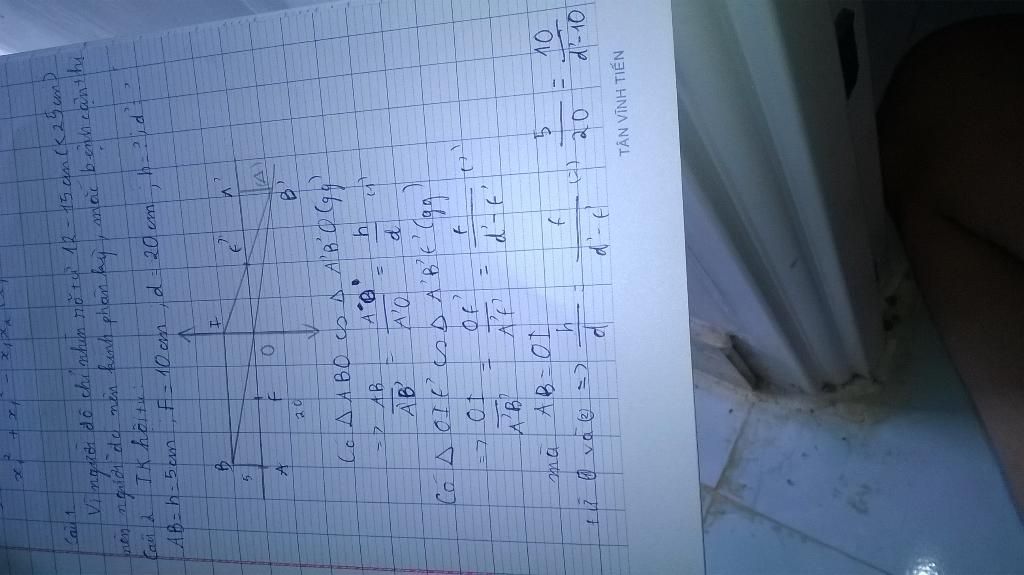 x₁² + x₂² - x₁x₂
Câu 1
Vì người đó chỉ nhìn rõ từ 12 - 15cm (<25cm)
nên người đó nên kính phân kỳ, mắc bệnh cận thị
Câu 2 TK hội tụ:
AB=h=5cm; F=10cm, d=20cm, h=?, d'?
B
I
(Δ)
5
F'
A'
A
F
O
B'
20
Có Δ ABO ∽ Δ A'B'O (gg)
=> AB/A'B' = AO/A'O = h/d (1)
Có Δ OIF' ∽ Δ A'B'F' (gg)
=> OI/A'B' = OF'/A'F' = f/d'-f' (2)
mà AB = OI
từ (1) và (2) => h/d = f/d'-f' (=) 5/20 = 10/d'-10
TÂN VĨNH TIẾN